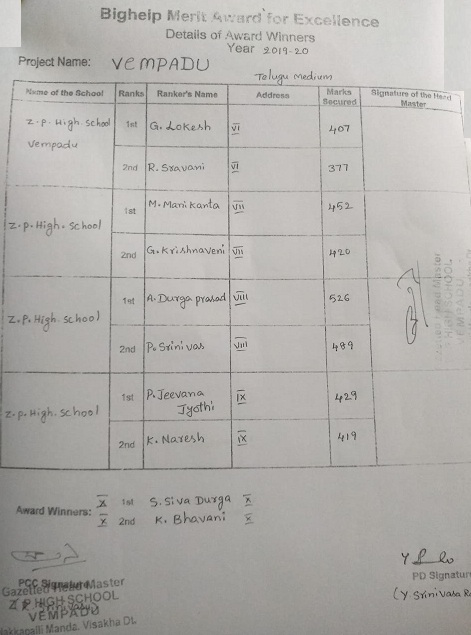 Bighelp Merit Award for Excellence
Details of Award Winners
Year 2019-20
Project Name: VEMPADU
Telugu medium
Name of the School Ranks Ranker's Name Address Marks Secured Signature of the Head Master
Z.P. High School Vempadu 1st G. Lokesh VI 407
2nd R. Sravani VI 377
Z.P. High. School 1st M. Manikanta VII 452
2nd G. Krishnaveni VII 420
Z.P. High School 1st A. Durga prasad VIII 526
2nd P. Srinivas VIII 489
Z.P. High. School 1st P. Jeevana Jyothi IX 429
2nd K. Naresh IX 419
Award Winners: X 1st S. Siva Durga X
X 2nd K. Bhavani X
PCC Signature
Gazetted Head Master
Z P HIGH SCHOOL
VEMPADU
Manda. Visakha Dt.
PD Signature
(Y Srinivasa